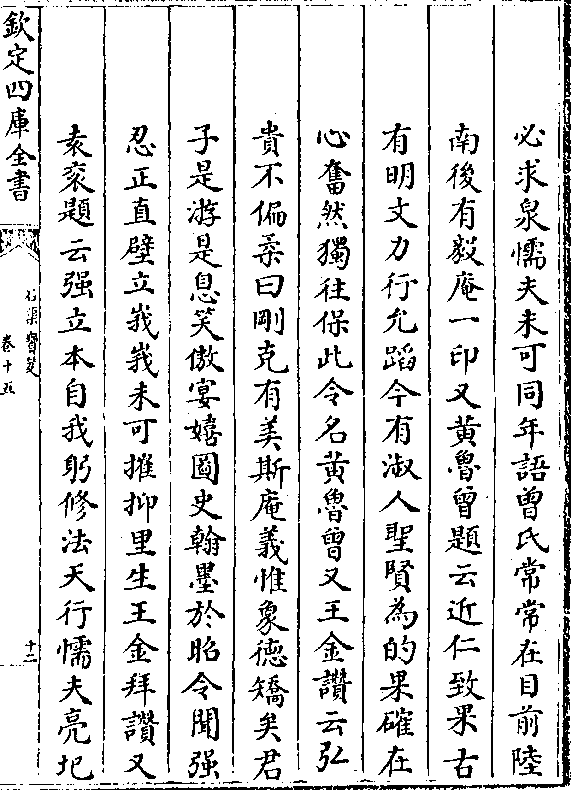 必求泉懦夫未可同年語曾氏常常在目前陸
南後有毅庵一印又黃魯曾題云近仁致果古
有明文力行允蹈今有淑人聖賢為的果確在
心奮然獨往保此令名黃魯曾又王金讚云弘
貴不偏柔曰剛克有美斯庵義惟象德矯矣君
子是游是息笑傲宴嬉圖史翰墨於昭令聞强
忍正直壁立峩峩未可摧抑里生王金拜讚又
袁袠題云强立本自我躬修法天行懦夫亮圮
欽定四庫全書
石渠寳笈
卷十五
十二